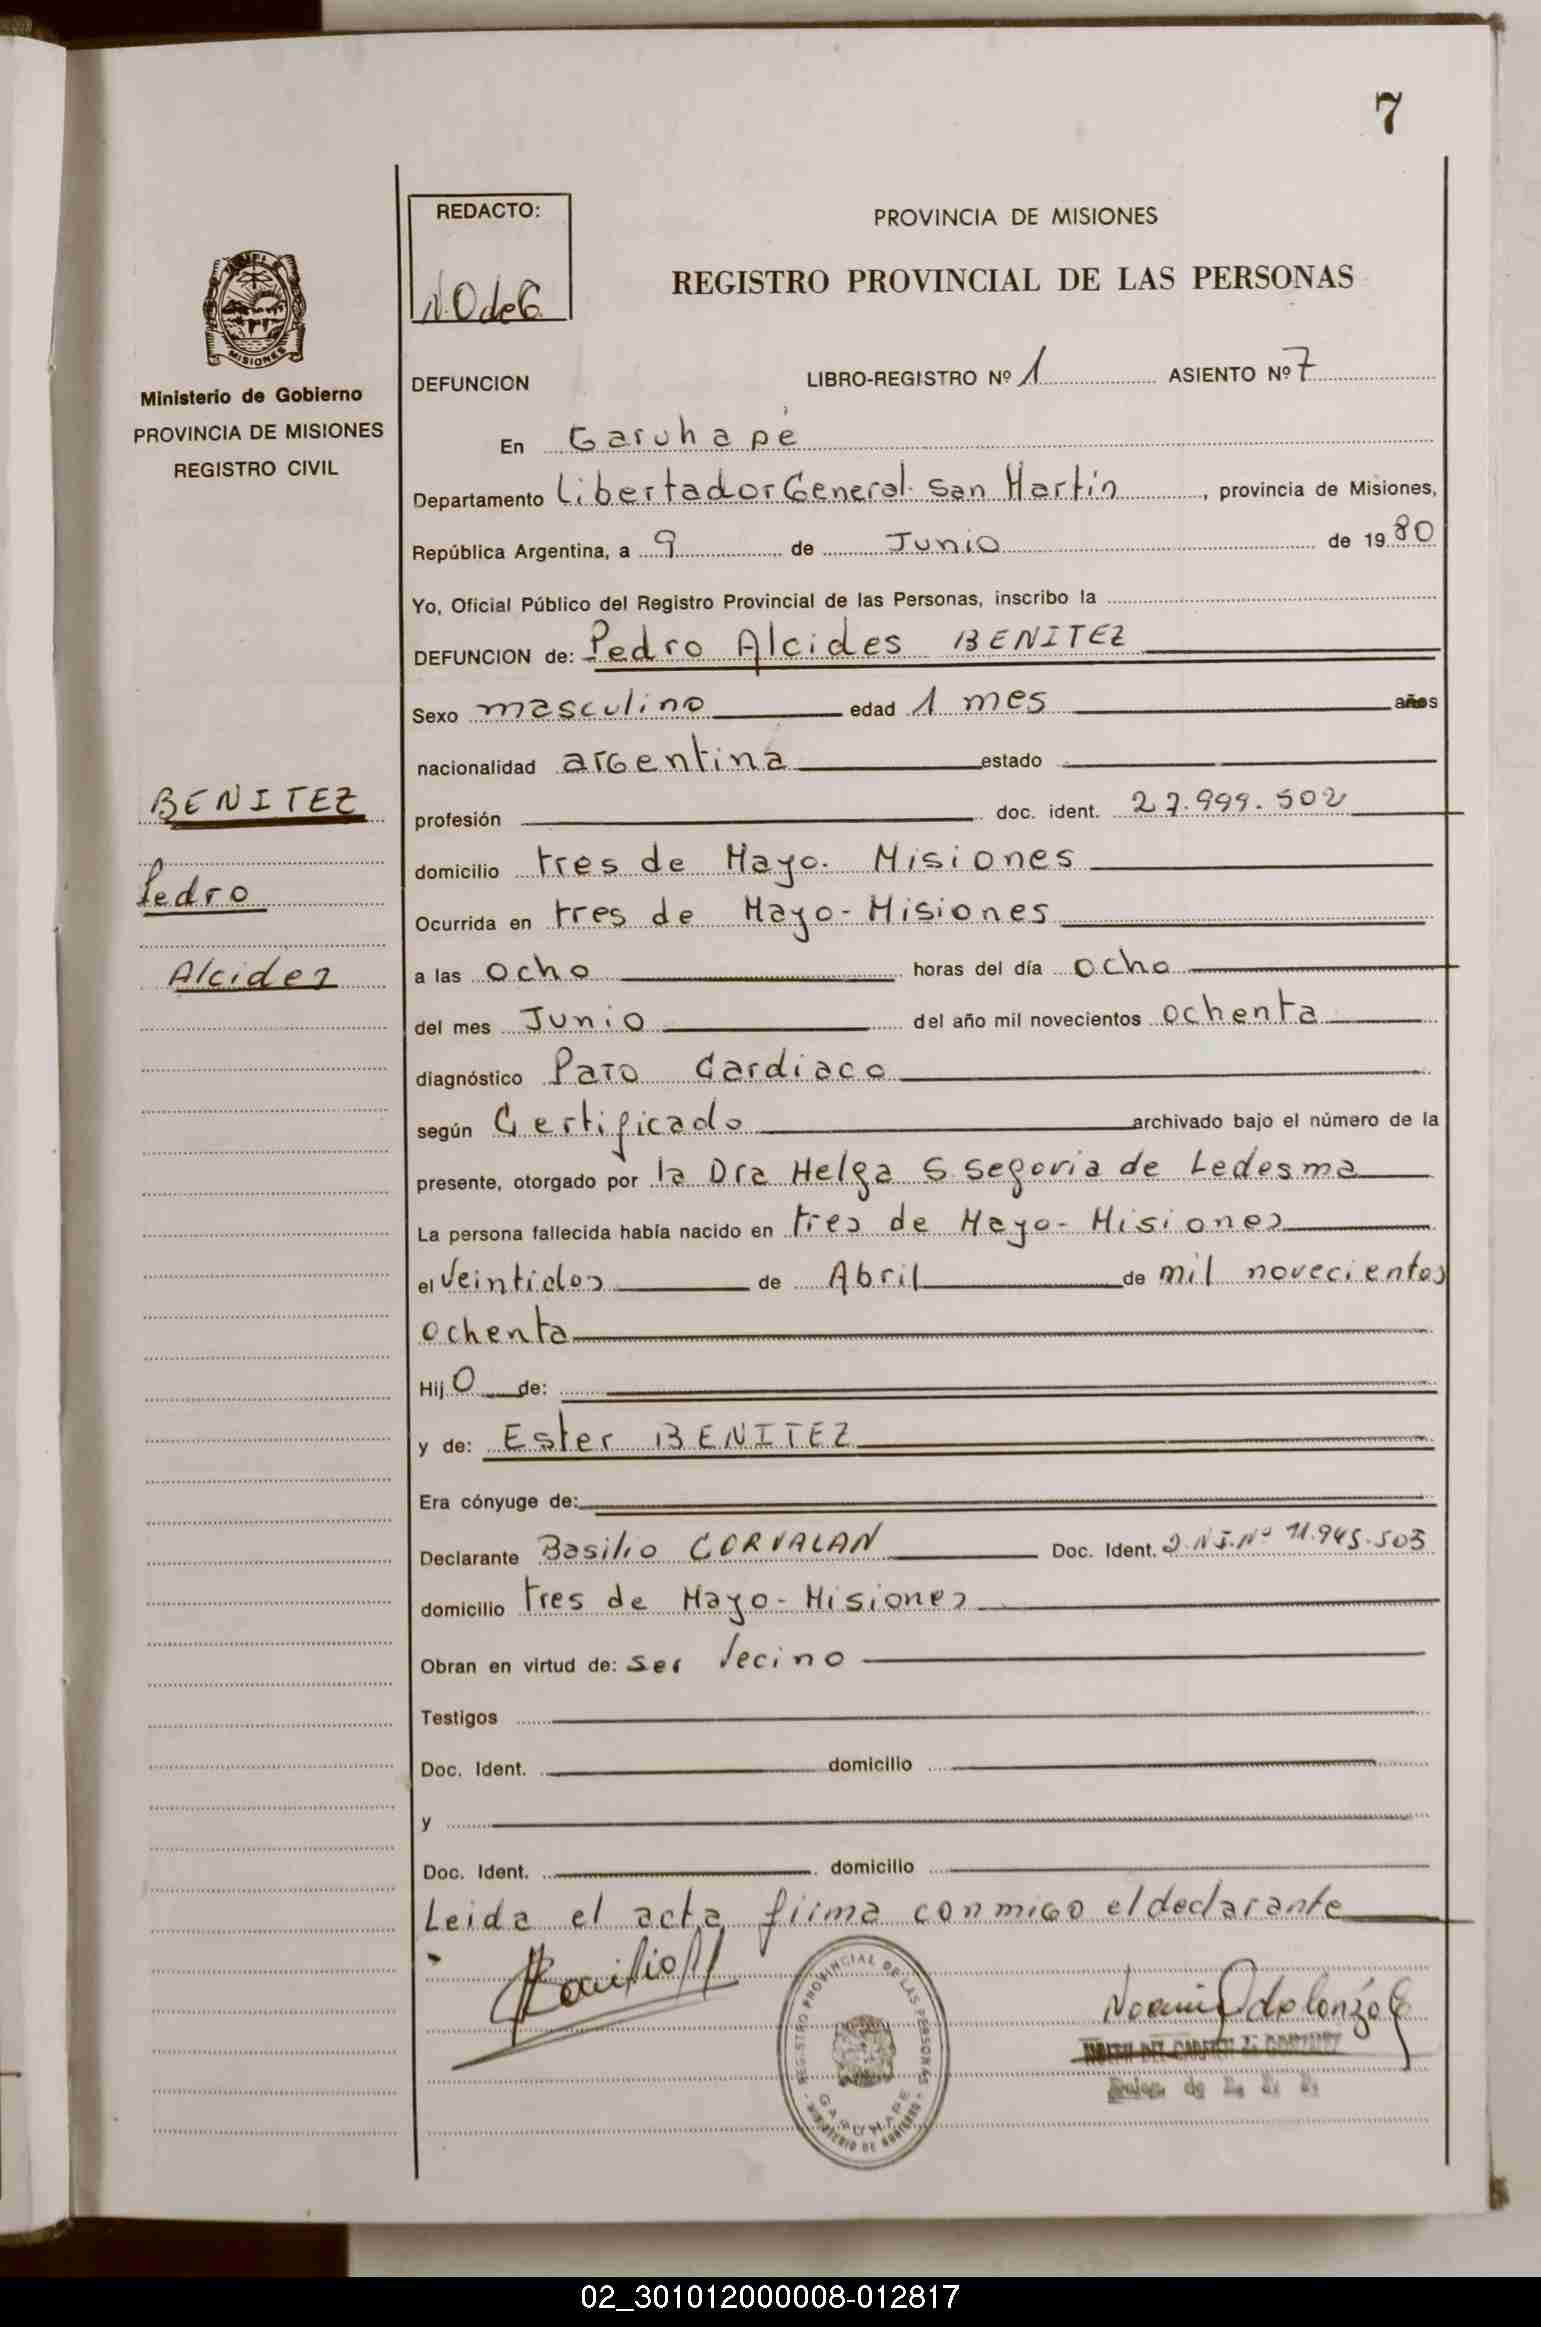 7
REDACTO:
N.O de G.
PROVINCIA DE MISIONES
REGISTRO PROVINCIAL DE LAS PERSONAS
MISIONES
Ministerio de Gobierno
PROVINCIA DE MISIONES
REGISTRO CIVIL
DEFUNCION LIBRO-REGISTRO Nº 1 ASIENTO Nº 7
En Garuhapé
Departamento Libertador General San Martín, provincia de Misiones,
República Argentina, a 9 de Junio de 1980
Yo, Oficial Público del Registro Provincial de las Personas, inscribo la
DEFUNCION de: Pedro Alcides BENITEZ
Sexo masculino edad 1 mes años
nacionalidad argentina estado
BENITEZ
profesión doc. ident. 27.999.502
domicilio tres de Mayo. Misiones
Pedro
Ocurrida en tres de Mayo - Misiones
Alcides
a las ocho horas del día ocho
del mes Junio del año mil novecientos ochenta
diagnóstico Paro Cardiaco
según Certificado archivado bajo el número de la
presente, otorgado por la Dra Helga S. Segovia de Ledesma
La persona fallecida había nacido en tres de Mayo - Misiones
el Veintidos de Abril de mil novecientos
ochenta
Hij O de:
y de: Ester BENITEZ
Era cónyuge de:
Declarante Basilio CORVALAN Doc. Ident. D.N.I.Nº 11.945.503
domicilio tres de Mayo - Misiones
Obran en virtud de: ser Vecino
Testigos
Doc. Ident. domicilio
y
Doc. Ident. domicilio
Leida el acta firma conmigo el declarante
REGISTRO PROVINCIAL DE LAS PERSONAS
GARUHAPE
MINISTERIO DE GOBIERNO
02_301012000008-012817